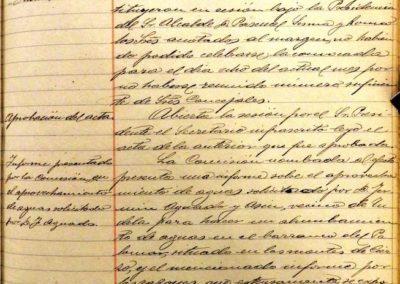 tituyeron en sesión bajo la Presidencia
del Sr. Alcalde D. Pascual y
los Sres. anotados al margen, no habien
do podido celebrarse la convocada
para el día ocho del actual mes por
no haberse reunido número suficien
te de Sres Concejales.
Aprobación del acta.
Abierta la sesión por el Sr. Presi
dente el Secretario infrascrito leyó el
acta de la anterior que fue aprobada.
Informe presentado
por la Comisión, en
el aprovechamiento
de aguas solicitado
por D. J. Aguado.
La Comisión nombrada al efecto
presentó una informe sobre el aprovecha
miento de aguas solicitado por D.
Aguado y vecino de Tu
dela para hacer un alumbramien
to de aguas en el barranco del Pa
lomar, situado en los montes de
y el mencionado informe por
que